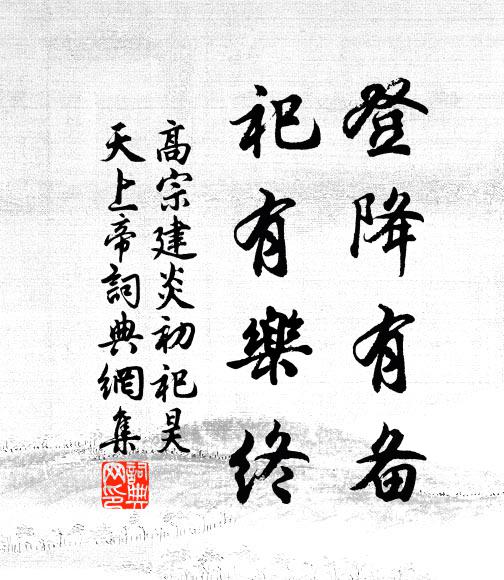 登降有备
祀有樂终
高宗建炎初祀昊
天上帝詞典網集
詞典
网印